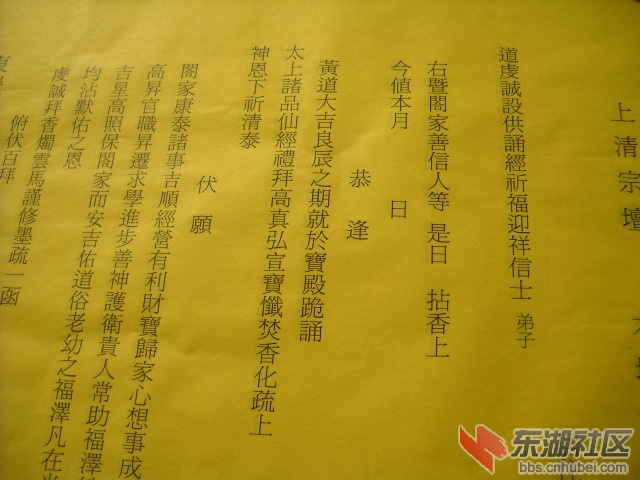 上清宗壇
道虔誠設供誦經祈福迎祥信士 弟子
右暨閤家善信人等 是日 拈香上
今值本月 日
恭逢
黃道大吉良辰之期就於寶殿跪誦
太上諸品仙經禮拜高真弘宣寶懺焚香化疏上
神恩下祈清泰
伏願
閤家康泰諸事吉順經營有利財寶歸家心想事成
高昇官職昇遷求學進步善神護衛貴人常助福澤
吉星高照保閤家而安吉佑道俗老幼之福澤凡在
均沾默佑之恩
虔誠拜香燭雲馬謹修墨疏一函
俯伏百拜
東湖社区
bbs.cnhubei.com